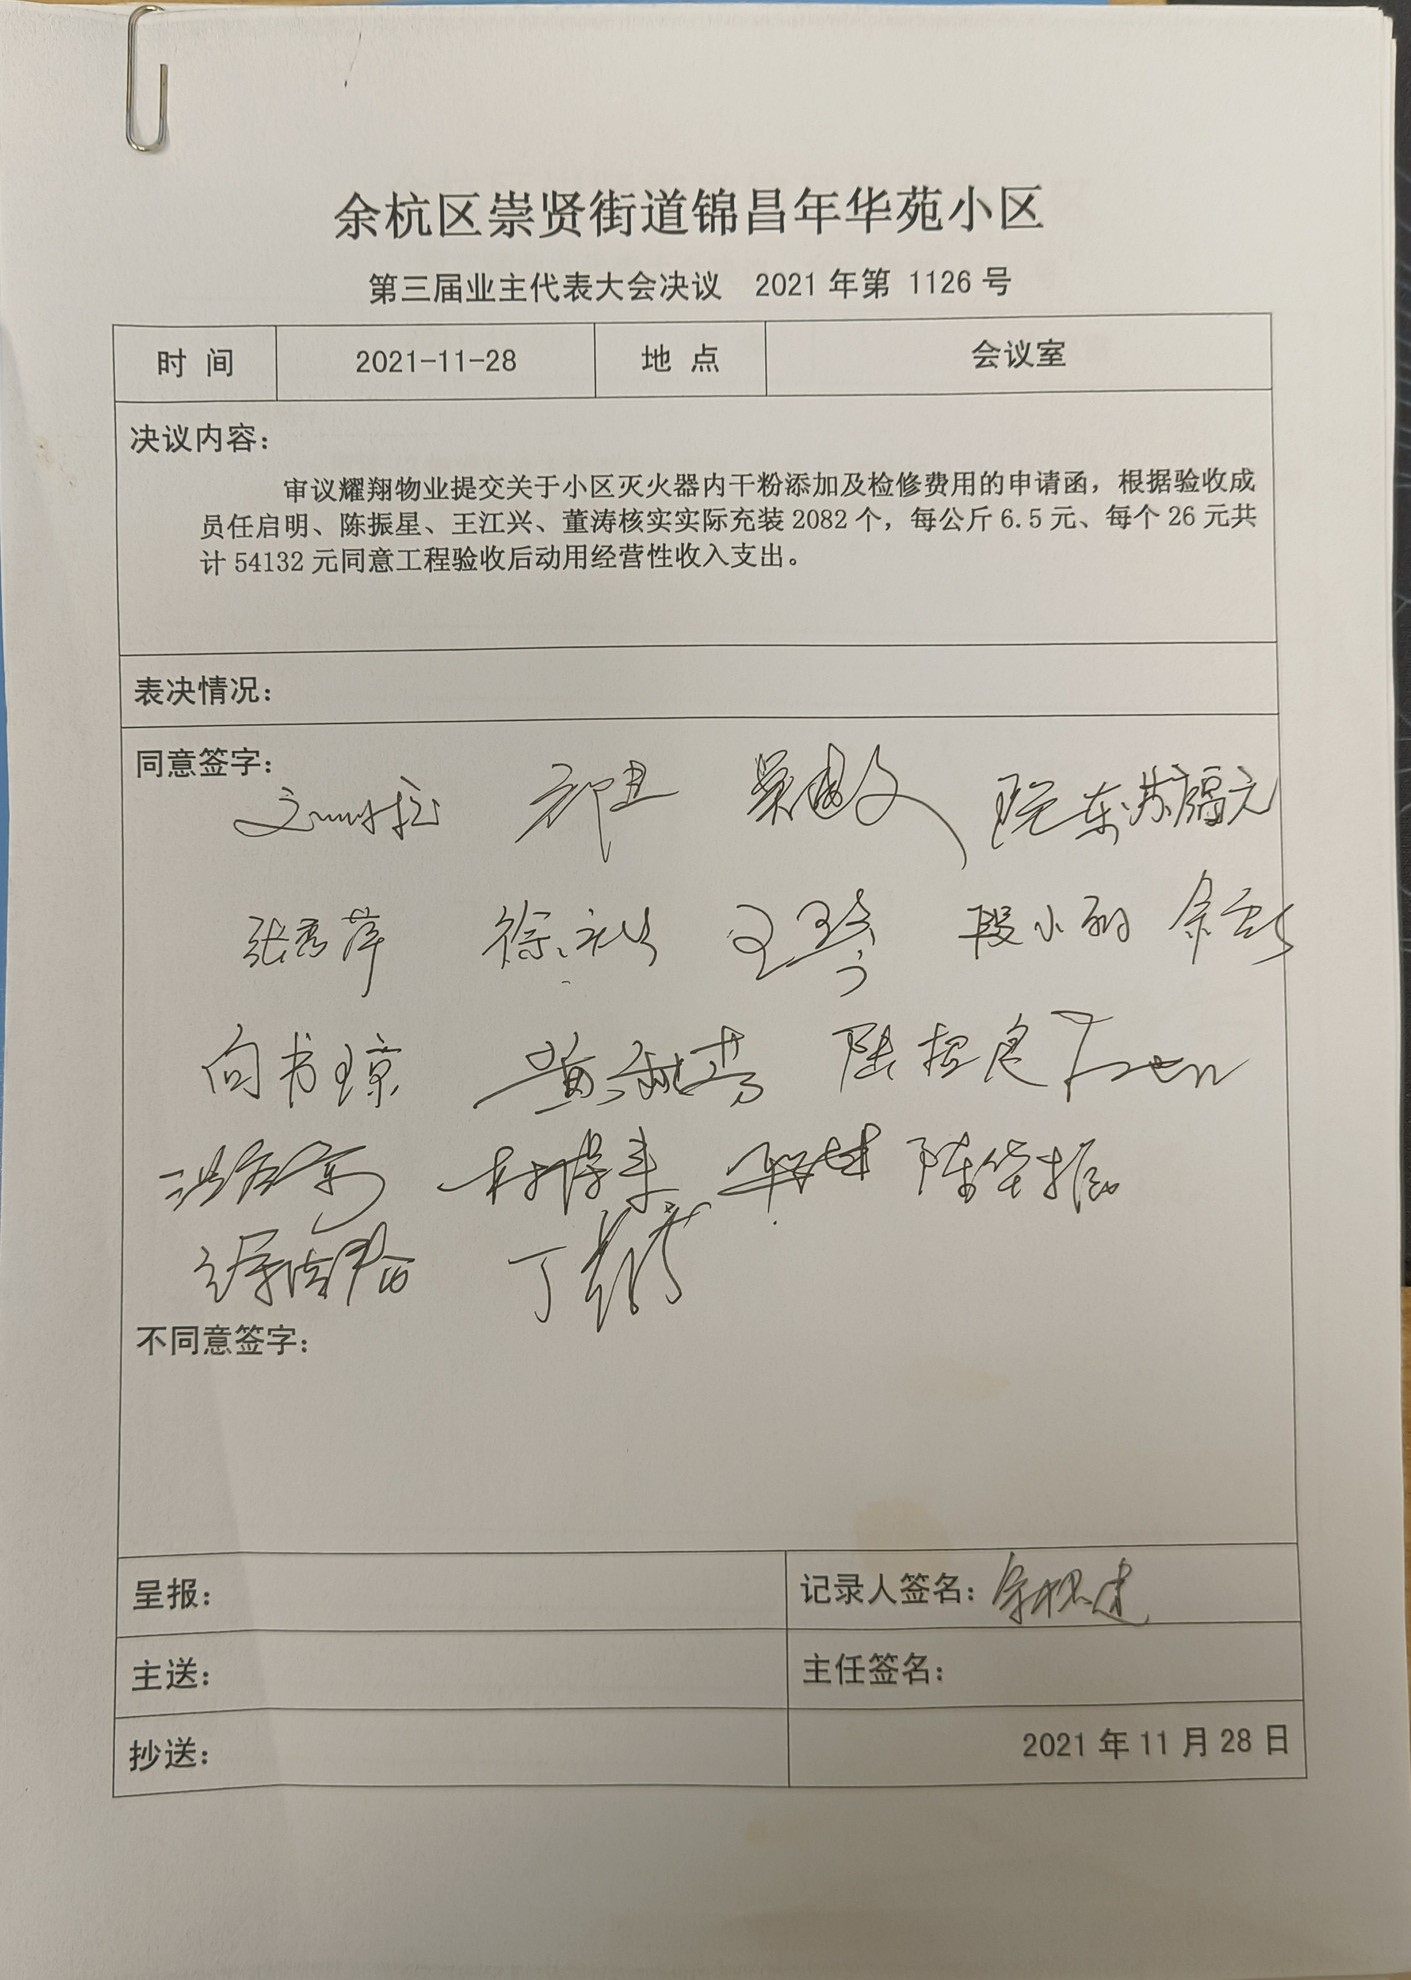 余杭区崇贤街道锦昌年华苑小区
第三届业主代表大会决议 2021 年第 1126 号
时 间 2021-11-28 地 点 会议室
决议内容：
审议耀翔物业提交关于小区灭火器内干粉添加及检修费用的申请函，根据验收成
员任启明、陈振星、王江兴、董涛核实实际充装 2082 个，每公斤 6.5 元、每个 26 元共
计 54132 元同意工程验收后动用经营性收入支出。
表决情况：
同意签字：
张秀萍 王琴 段小丽
向书琼
不同意签字：
呈报： 记录人签名：
主送： 主任签名：
抄送： 2021 年 11 月 28 日